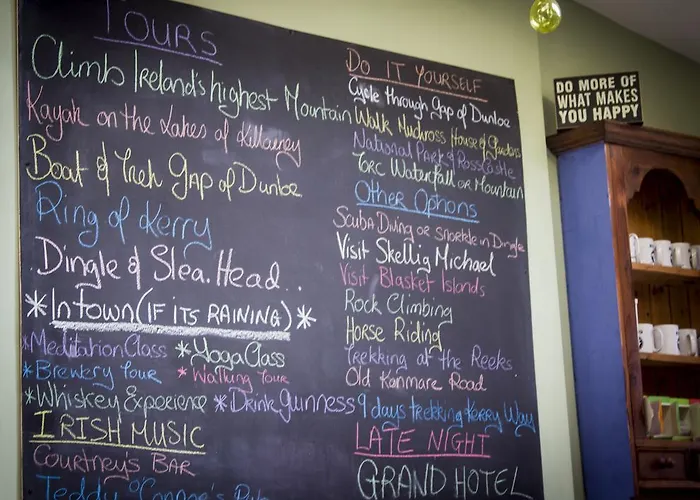 TOURS
Climb Ireland's highest Mountain
Kayak on the Lakes of Killarney
Boat & Trek Gap of Dunloe
Ring of Kerry
Dingle & Slea. Head..
* In town (IF ITS RAINING) *
*Meditation Class *Yoga Class
*Brewery Tour *Walking Tour
*Whiskey Experience *Drink Guinness
IRISH MUSIC
Courtney's BAR
Teddy O'Connor's Pub
DO IT YOURSELF
Cycle through Gap of Dunloe
Walk Muckross House & Gardens
National Park & Ross Castle
Torc Waterfall or Mountain
Other Options
Scuba Diving or snorkle in Dingle
Visit Skellig Michael
Visit Blasket Islands
Rock Climbing
Horse Riding
Trekking at the Reeks
Old Kenmare Road
9 days trekking Kerry Way
LATE NIGHT
GRAND HOTEL
DO MORE OF
WHAT MAKES
YOU HAPPY